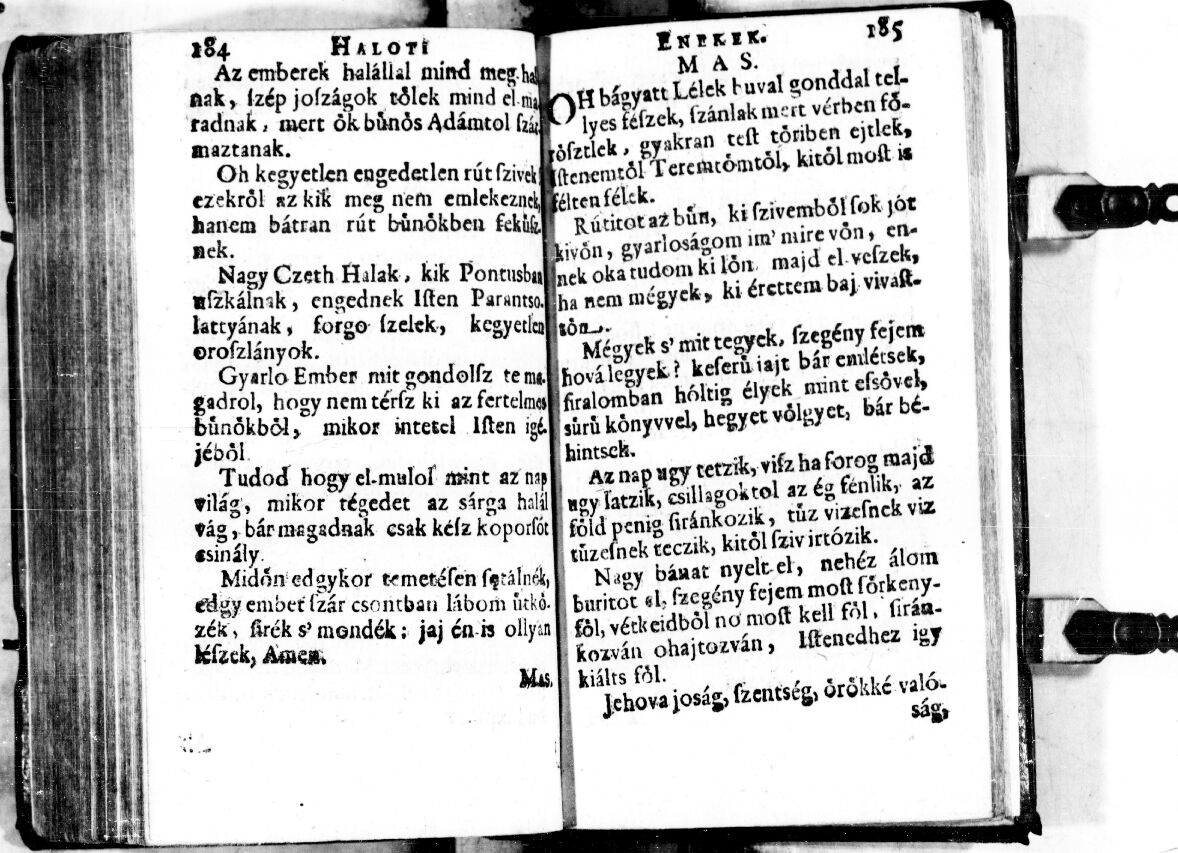 184 HALOTI
Az emberek halállal mind meg-hal
nak, ſzép joſzágok tőlek mind el-ma
radnak, mert ők bűnős Adámtol ſzár
maztanak.
Oh kegyetlen engedetlen rút ſzivek
ezekről az kik meg nem emlekeznek,
hanem bátran rút bűnőkben fekűſz-
nek.
Nagy Czeth Halak, kik Pontusban
uſzkálnak, engednek Iſten Parantso-
lattyának, forgo ſzelek, kegyetlen
oroſzlányok.
Gyarlo Ember mit gondolſz te ma-
gadrol, hogy nem térſz ki az fertelmes
bűnőkből, mikor intetel Iſten igé-
jéből.
Tudod hogy el-muloſ mint az nap
világ, mikor tégedet az sárga halál
vág, bár magadnak csak kéſz koporſót
csinály.
Midőn edgykor temetéſen ſétálnék,
edgy embet ſzár csontban lábom űtkő-
zék, ſirék s' mondék: jaj én is ollyan
léſzek, Amen.
MAS.
ENEKEK. 185
MAS.
OH bágyatt Lélek buval gonddal tel-
lyes féſzek, ſzánlak mert vérben fő-
rőſztlek, gyakran teſt tőriben ejtlek,
Iſtenemtől Teremtőmtől, kitől moſt is
félten félek.
Rútitot az bűn, ki ſzivemből ſok jót
kivőn, gyarloságom im' mire vőn, en-
nek oka tudom ki lőn majd el-veſzek,
ha nem mégyek, ki érettem baj vivaſt-
tőn.
Mégyek s' mit tegyek, ſzegény fejem
hová legyek? keſerű jajt bár emlétsek,
ſiralomban hóltig élyek mint eſsővel,
sűrű kőnyvvel, hegyet vőlgyet, bár bé-
hintsek.
Az nap ugy tetzik, viſz ha forog majd
ugy latzik, csillagoktol az ég fénlik, az
főld penig ſiránkozik, tűz vizeſnek viz
tűzeſnek teczik, kitől ſziv irtózik.
Nagy bánat nyelt el, nehéz álom
buritot el, ſzegény fejem moſt ſőrkeny-
fől, vétkeidből no moſt kell fől, ſirán-
kozván ohajtozván, Iſtenedhez igy
kiálts fől.
Jehova joság, ſzentség, őrőkké való-
ság,